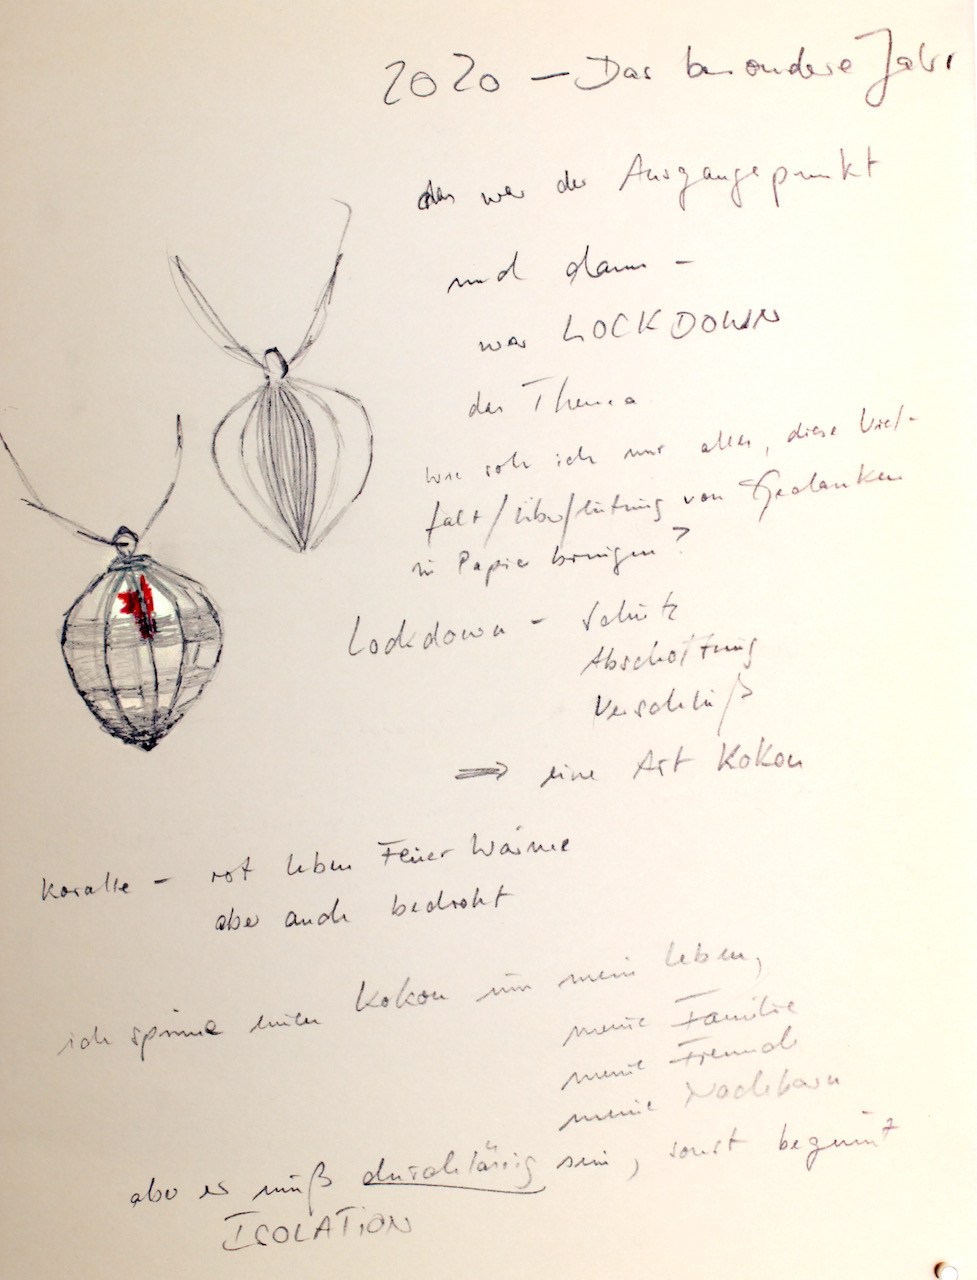 2020 – Das besondere Jahr
das war der Ausgangspunkt
und dann –
war LOCKDOWN
das Thema
Wie soll ich nur alles, diese Viel-
falt/Überflutung von Gedanken
in Papier bringen?
Lockdown – Schutz
Abschottung
Verschluß
⇒ eine Art Kokon
Koralle – rot Leben Feuer Wärme
aber auch bedroht
ich spinne einen Kokon um mein Leben,
meine Familie
meine Freunde
meine Nachbarn
aber es muß durchlässig sein, sonst beginnt
ISOLATION